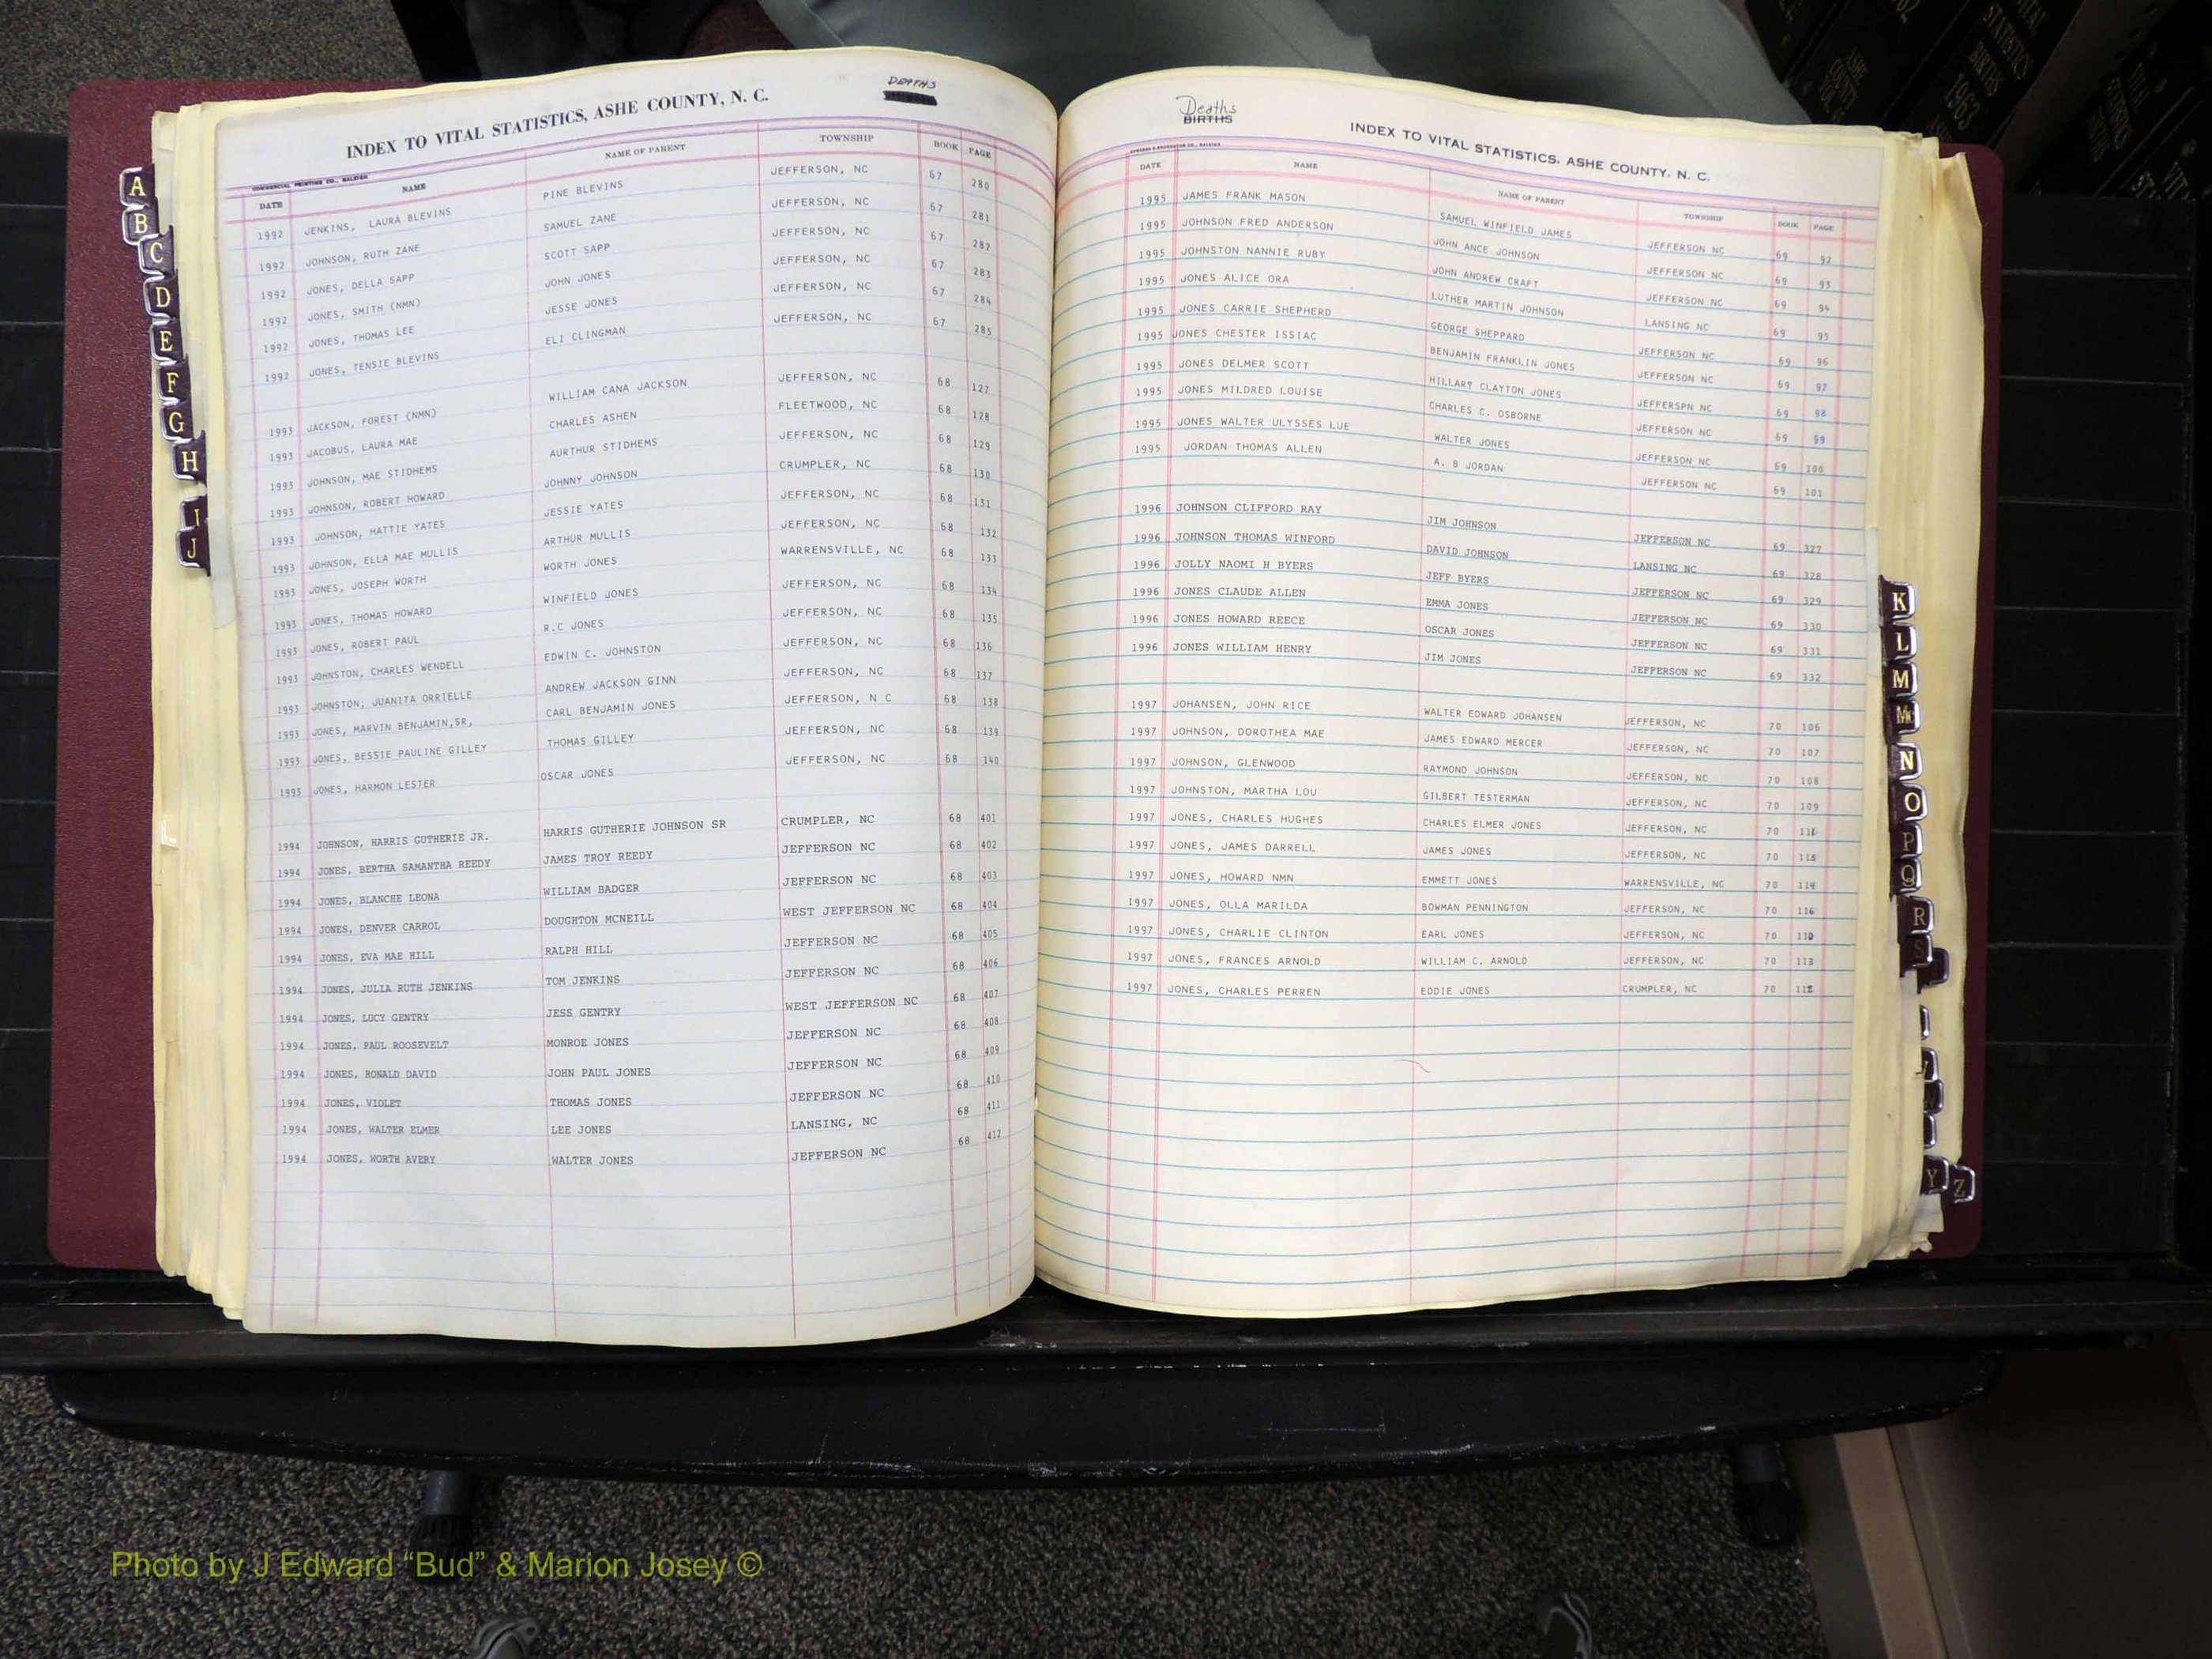 INDEX TO VITAL STATISTICS, ASHE COUNTY, N. C. DEATHS
COMMERCIAL PRINTING CO., RALEIGH
DATE NAME NAME OF PARENT TOWNSHIP BOOK PAGE
1992 JENKINS, LAURA BLEVINS PINE BLEVINS JEFFERSON, NC 67 280
1992 JOHNSON, RUTH ZANE SAMUEL ZANE JEFFERSON, NC 67 281
1992 JONES, DELLA SAPP SCOTT SAPP JEFFERSON, NC 67 282
1992 JONES, SMITH (NMN) JOHN JONES JEFFERSON, NC 67 283
1992 JONES, THOMAS LEE JESSE JONES JEFFERSON, NC 67 284
1992 JONES, TENSIE BLEVINS ELI CLINGMAN JEFFERSON, NC 67 285
1993 JACKSON, FOREST (NMN) WILLIAM CANA JACKSON JEFFERSON, NC 68 127
1993 JACOBUS, LAURA MAE CHARLES ASHEN FLEETWOOD, NC 68 128
1993 JOHNSON, MAE STIDHEMS AURTHUR STIDHEMS JEFFERSON, NC 68 129
1993 JOHNSON, ROBERT HOWARD JOHNNY JOHNSON CRUMPLER, NC 68 130
1993 JOHNSON, HATTIE YATES JESSIE YATES JEFFERSON, NC 68 131
1993 JOHNSON, ELLA MAE MULLIS ARTHUR MULLIS JEFFERSON, NC 68 132
1993 JONES, JOSEPH WORTH WORTH JONES WARRENSVILLE, NC 68 133
1993 JONES, THOMAS HOWARD WINFIELD JONES JEFFERSON, NC 68 134
1993 JONES, ROBERT PAUL R.C JONES JEFFERSON, NC 68 135
1993 JOHNSTON, CHARLES WENDELL EDWIN C. JOHNSTON JEFFERSON, NC 68 136
1993 JOHNSTON, JUANITA ORRIELLE ANDREW JACKSON GINN JEFFERSON, NC 68 137
1993 JONES, MARVIN BENJAMIN,SR, CARL BENJAMIN JONES JEFFERSON, N C 68 138
1993 JONES, BESSIE PAULINE GILLEY THOMAS GILLEY JEFFERSON, NC 68 139
1993 JONES, HARMON LESTER OSCAR JONES JEFFERSON, NC 68 140
1994 JOHNSON, HARRIS GUTHERIE JR. HARRIS GUTHERIE JOHNSON SR CRUMPLER, NC 68 401
1994 JONES, BERTHA SAMANTHA REEDY JAMES TROY REEDY JEFFERSON NC 68 402
1994 JONES, BLANCHE LEONA WILLIAM BADGER JEFFERSON NC 68 403
1994 JONES, DENVER CARROL DOUGHTON MCNEILL WEST JEFFERSON NC 68 404
1994 JONES, EVA MAE HILL RALPH HILL JEFFERSON NC 68 405
1994 JONES, JULIA RUTH JENKINS TOM JENKINS JEFFERSON NC 68 406
1994 JONES, LUCY GENTRY JESS GENTRY WEST JEFFERSON NC 68 407
1994 JONES, PAUL ROOSEVELT MONROE JONES JEFFERSON NC 68 408
1994 JONES, RONALD DAVID JOHN PAUL JONES JEFFERSON NC 68 409
1994 JONES, VIOLET THOMAS JONES JEFFERSON NC 68 410
1994 JONES, WALTER ELMER LEE JONES LANSING, NC 68 411
1994 JONES, WORTH AVERY WALTER JONES JEFFERSON NC 68 412
Deaths
BIRTHS
INDEX TO VITAL STATISTICS, ASHE COUNTY, N. C.
DATE NAME NAME OF PARENT TOWNSHIP BOOK PAGE
1995 JAMES FRANK MASON SAMUEL WINFIELD JAMES JEFFERSON NC 69 92
1995 JOHNSON FRED ANDERSON JOHN ANCE JOHNSON JEFFERSON NC 69 93
1995 JOHNSTON NANNIE RUBY JOHN ANDREW CRAFT JEFFERSON NC 69 94
1995 JONES ALICE ORA LUTHER MARTIN JOHNSON LANSING NC 69 95
1995 JONES CARRIE SHEPHERD GEORGE SHEPPARD JEFFERSON NC 69 96
1995 JONES CHESTER ISSIAC BENJAMIN FRANKLIN JONES JEFFERSON NC 69 97
1995 JONES DELMER SCOTT HILLARY CLAYTON JONES JEFFERSPN NC 69 98
1995 JONES MILDRED LOUISE CHARLES C. OSBORNE JEFFERSON NC 69 99
1995 JONES WALTER ULYSSES LUE WALTER JONES JEFFERSON NC 69 100
1995 JORDAN THOMAS ALLEN A. B JORDAN JEFFERSON NC 69 101
1996 JOHNSON CLIFFORD RAY JIM JOHNSON JEFFERSON NC 69 327
1996 JOHNSON THOMAS WINFORD DAVID JOHNSON LANSING NC 69 328
1996 JOLLY NAOMI H BYERS JEFF BYERS JEFFERSON NC 69 329
1996 JONES CLAUDE ALLEN EMMA JONES JEFFERSON NC 69 330
1996 JONES HOWARD REECE OSCAR JONES JEFFERSON NC 69 331
1996 JONES WILLIAM HENRY JIM JONES JEFFERSON NC 69 332
1997 JOHANSEN, JOHN RICE WALTER EDWARD JOHANSEN JEFFERSON, NC 70 106
1997 JOHNSON, DOROTHEA MAE JAMES EDWARD MERCER JEFFERSON, NC 70 107
1997 JOHNSON, GLENWOOD RAYMOND JOHNSON JEFFERSON, NC 70 108
1997 JOHNSTON, MARTHA LOU GILBERT TESTERMAN JEFFERSON, NC 70 109
1997 JONES, CHARLES HUGHES CHARLES ELMER JONES JEFFERSON, NC 70
1997 JONES, JAMES DARRELL JAMES JONES JEFFERSON, NC 70 115
1997 JONES, HOWARD NMN EMMETT JONES WARRENSVILLE, NC 70 114
1997 JONES, OLLA MARILDA BOWMAN PENNINGTON JEFFERSON, NC 70 116
1997 JONES, CHARLIE CLINTON EARL JONES JEFFERSON, NC 70 110
1997 JONES, FRANCES ARNOLD WILLIAM C. ARNOLD JEFFERSON, NC 70 113
1997 JONES, CHARLES PERREN EDDIE JONES CRUMPLER, NC 70 112
A
B
C
D
E
F
G
H
I
J
K
L
M
Mc
N
O
P
Q
R
S
Y
Z
VITAL STATISTICS BIRTHS 1963
ASHE COUNTY
Photo by J Edward “Bud” & Marion Josey ©